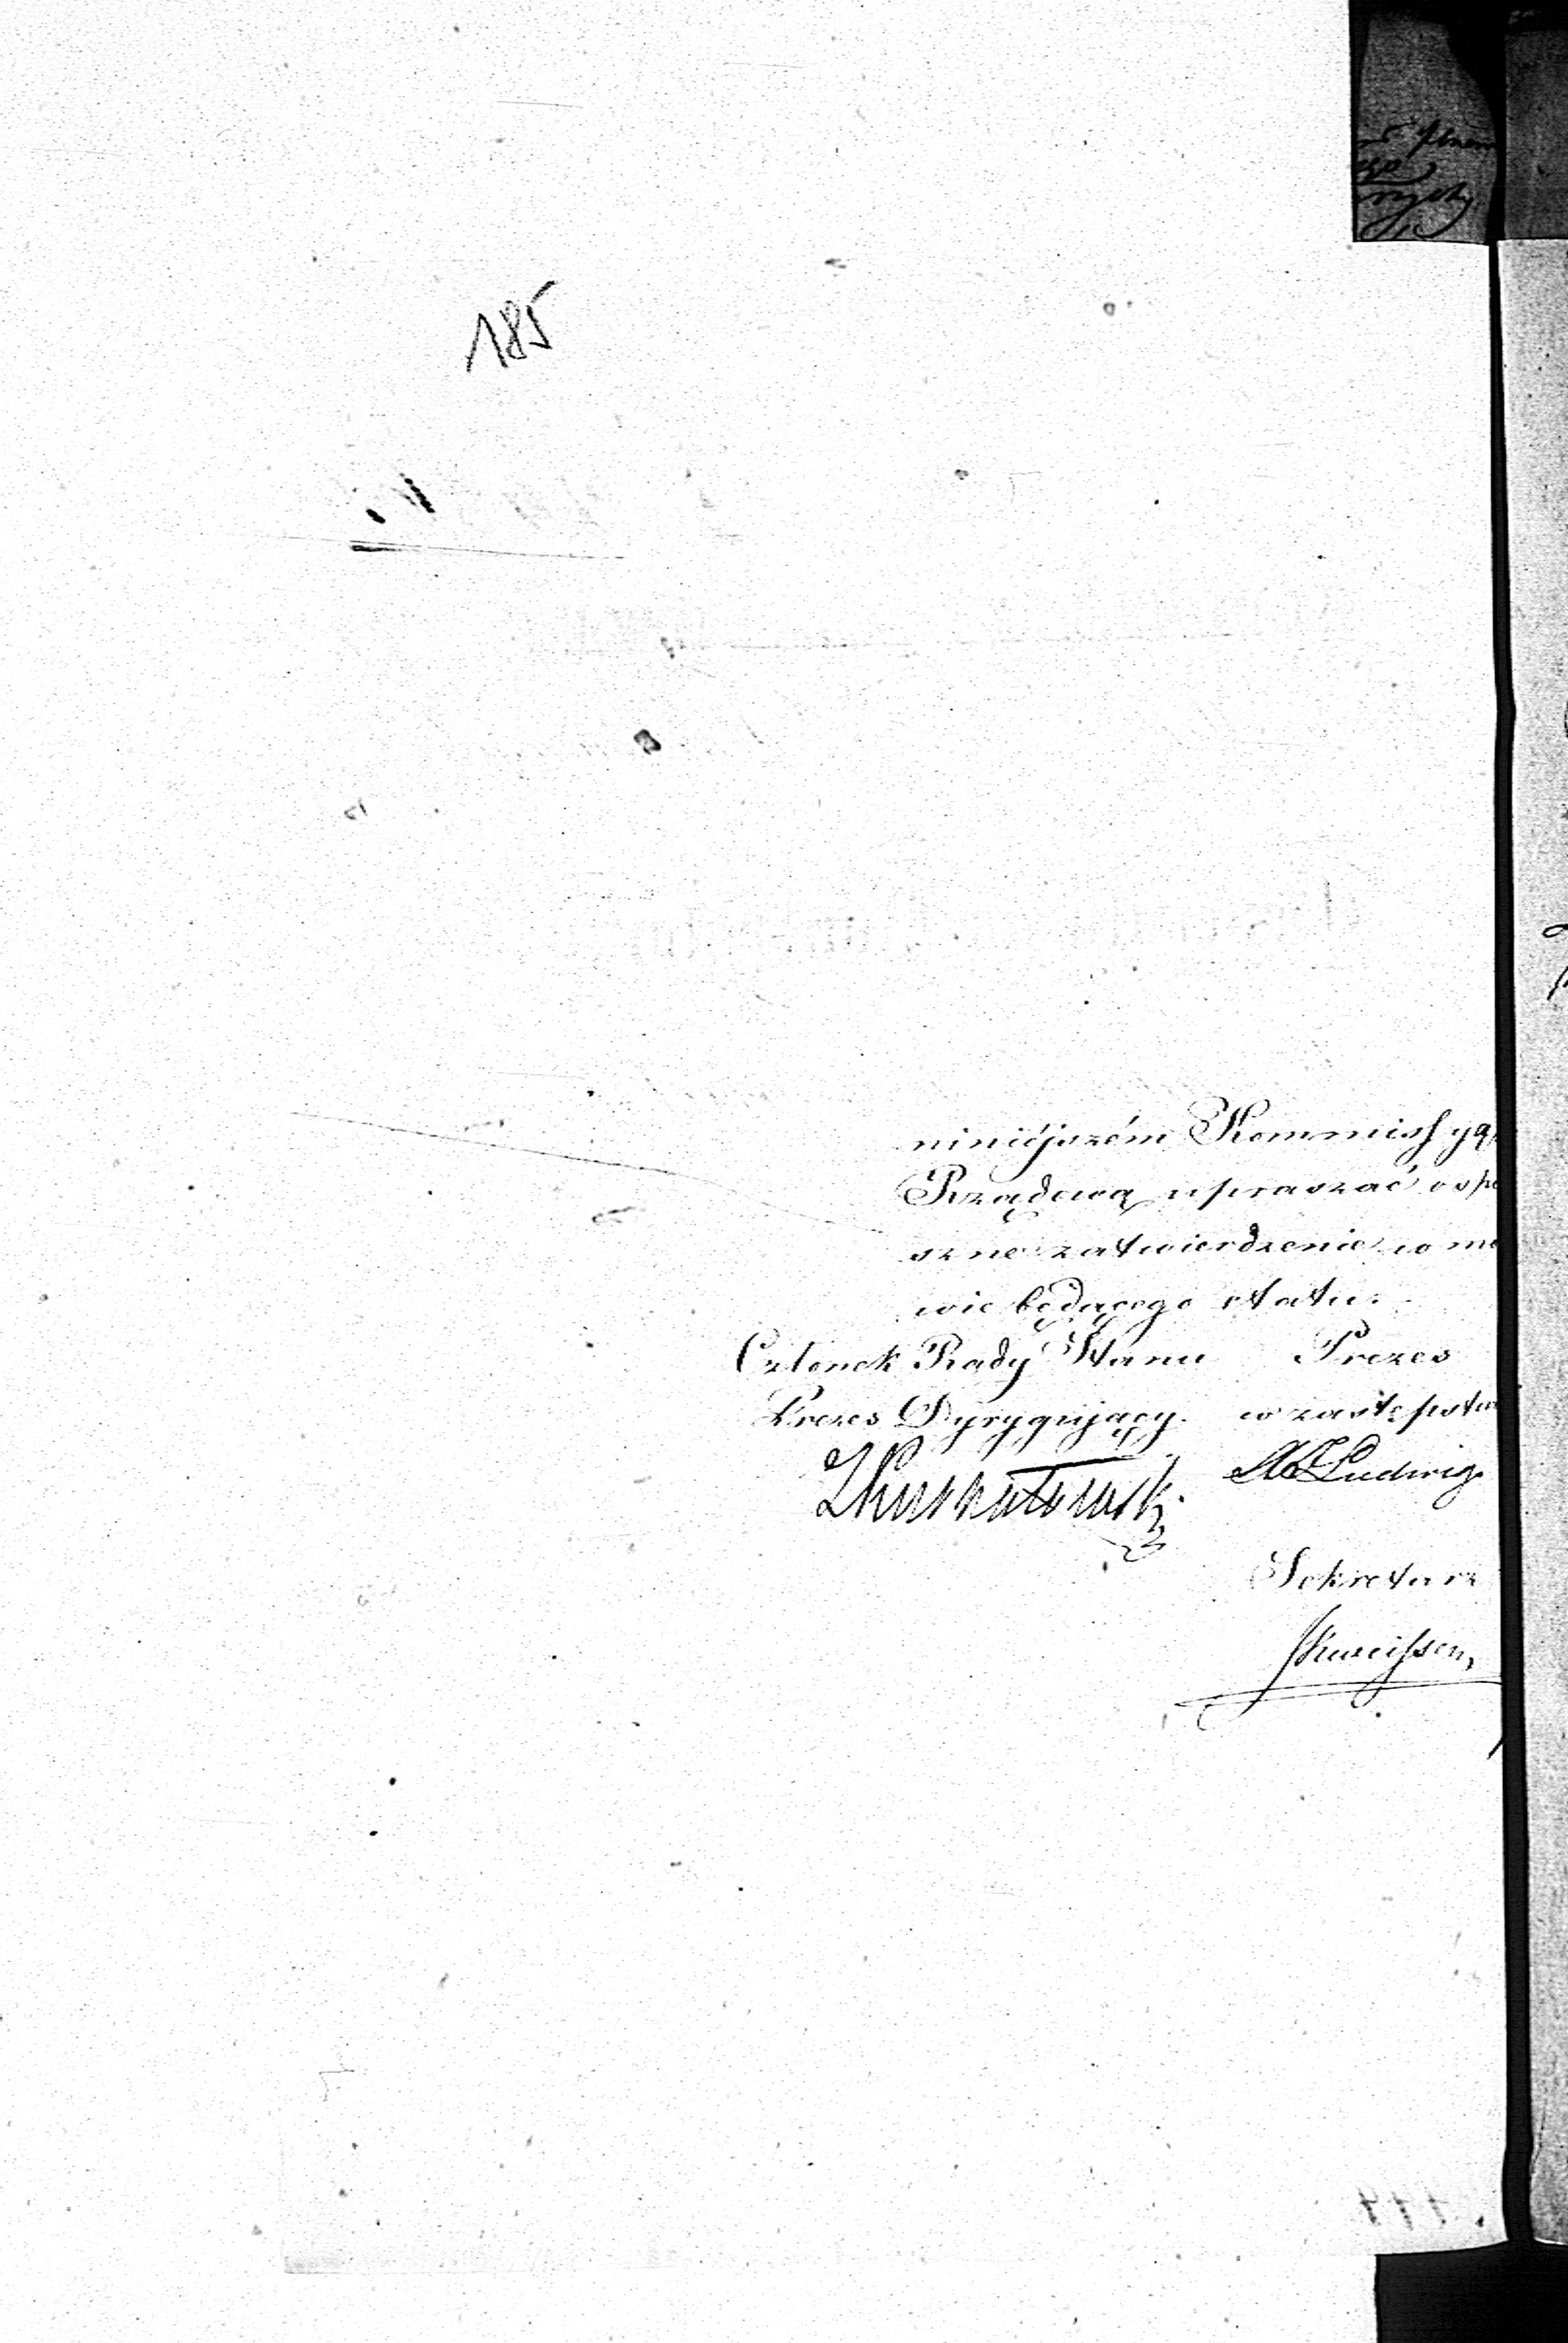 185
niniéjszém Kommissyą
Rządową upraszać o spe
szne zatwierdzenie w mo
wie będącego etatu.
Członek Rady Stanu Prezes
Prezes Dyrygujący. w zastępstw
Ludwig
Sekretarz